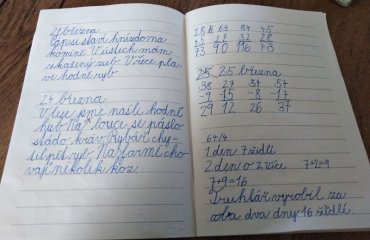 21 března
Čápi staví hnízdo na
komíně. V ústech mám
zkažený zub. V řece pla-
ve hodně ryb.
24. března
V lese jsme našli hodně
hub. Na louce se páslo
stádo krav. Rybář chy-
til pět ryb. Na farmě cho-
vají několik koz.
28 63 84 45
45 27 32 28
73 90 116 73
25. března
38 27 34 54
-9 15 -8 -17
29 12 26 37
64/4
1 den 7 židlí
2 den o 2 více 7+2=9
7+9=16
Truhlář vyrobil za
oba dva dny 16 židlí.